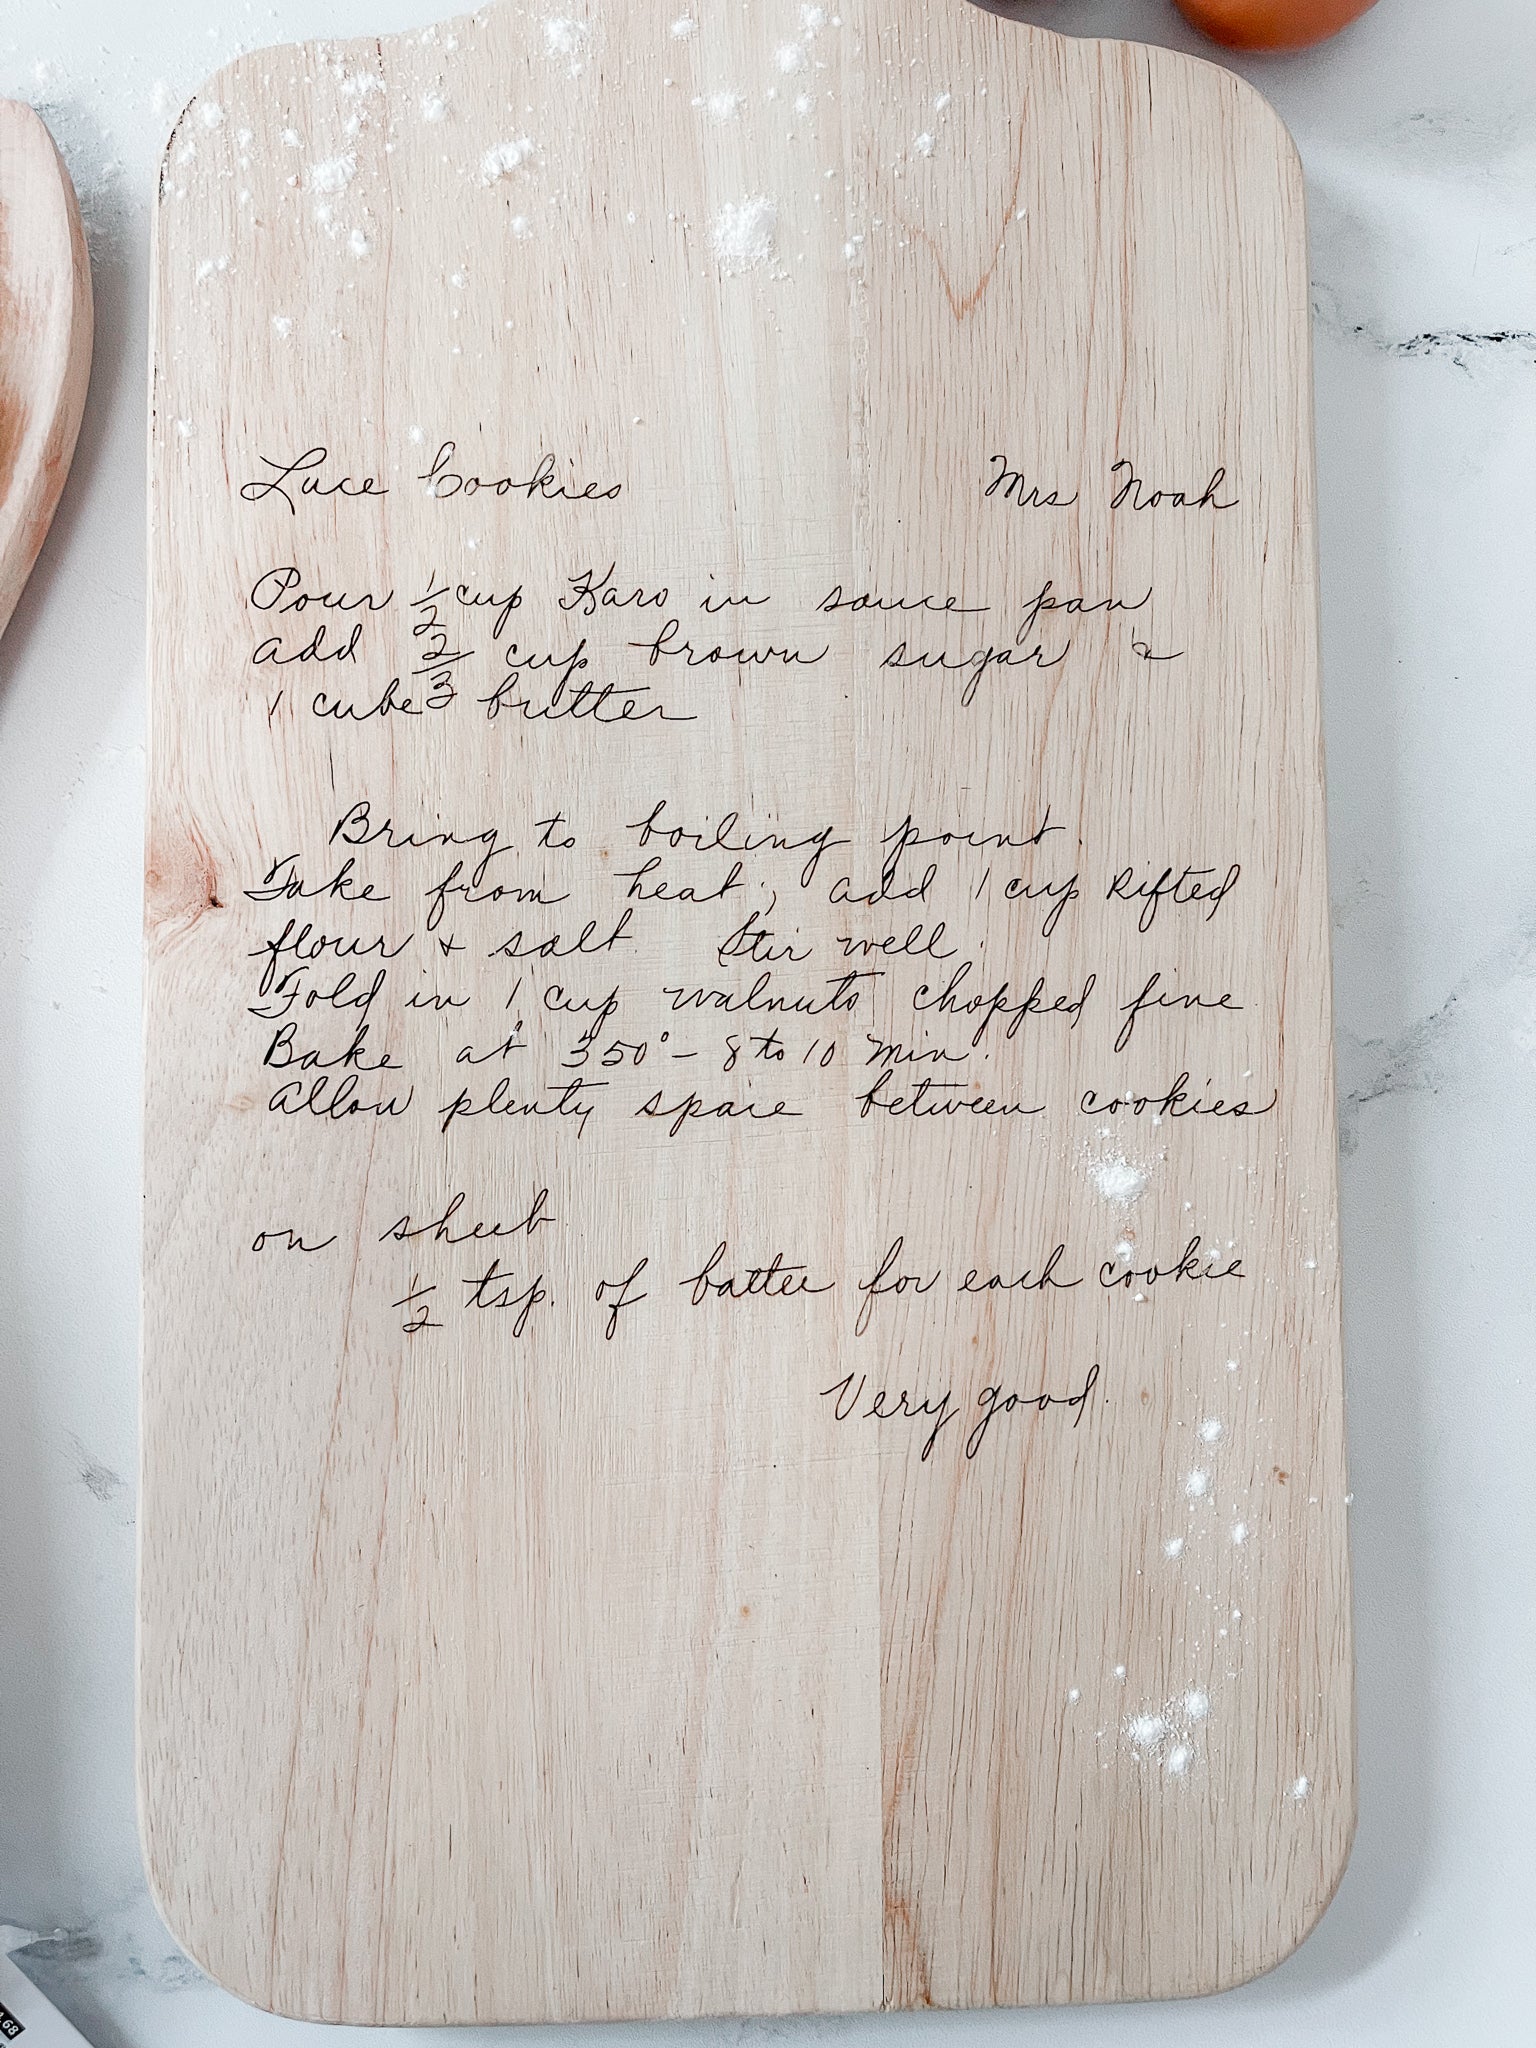 Lace Cookies Mrs Noah
Pour 1/2 cup Karo in sauce pan
add 2/3 cup brown sugar &
1 cube butter
Bring to boiling point.
Take from heat; add 1 cup sifted
flour & salt. Stir well.
Fold in 1 cup walnuts chopped fine
Bake at 350° - 8 to 10 min.
Allow plenty space between cookies
on sheet
1/2 tsp. of batter for each cookie
Very good.
.68